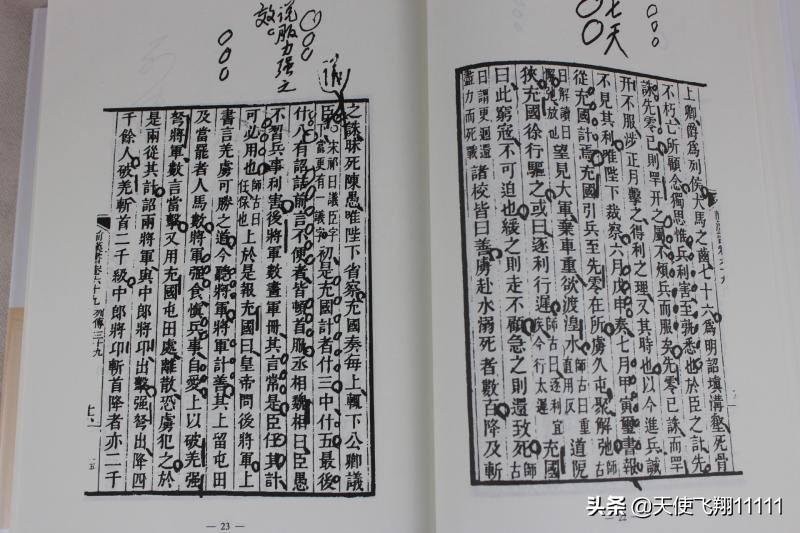 七天
上卿爵爲列侯犬馬之齒七十六爲明詔塡溝壑死骨
不朽亡所顧念獨思惟兵利害至孰悉也於臣之計先
誅先零已則䍐开之屬不煩兵而服矣先零已誅而䍐
开不服涉正月擊之得利之理又其時也以今進兵誠
不見其利唯陛下裁察六月戊申奏七月甲寅璽書報
從充國計焉充國引兵至先零在所虜久屯聚解弛師古
曰解讀曰懈弛放也望見大軍棄車重欲渡湟水師古曰重直用反道阸
狹充國徐行驅之或曰逐利行遲師古曰逐利宜疾今行太遲充國
曰此窮寇不可迫也緩之則走不顧急之則還致死師古
曰謂更迴還盡力而死戰諸校皆曰善虜赴水溺死者數百降及斬
22
说服力强之
效。
議
之誅昧死陳愚唯陛下省察充國奏每上輒下公卿議
臣宋祁曰議臣字當更有一議字初是充國計者什三中什五最後
什八有詔詰前言不便者皆頓首服丞相魏相曰臣愚
不習兵事利害後將軍數畫軍冊其言常是臣任其計
可必用也師古曰任保也上於是報充國曰皇帝問後將軍上
書言羌虜可勝之道今聽將軍將軍計善其上留屯田
及當罷者人馬數將軍强食愼兵事自愛上以破羌强
弩將軍數言當擊又用充國屯田處離散恐虜犯之於
是兩從其計詔兩將軍與中郎將卬出擊强弩出降四
千餘人破羌斬首二千級中郎將卬斬首降者亦二千
前漢書卷六十九 列傳三十九
— 23 —
头条 @天使飞翔11111